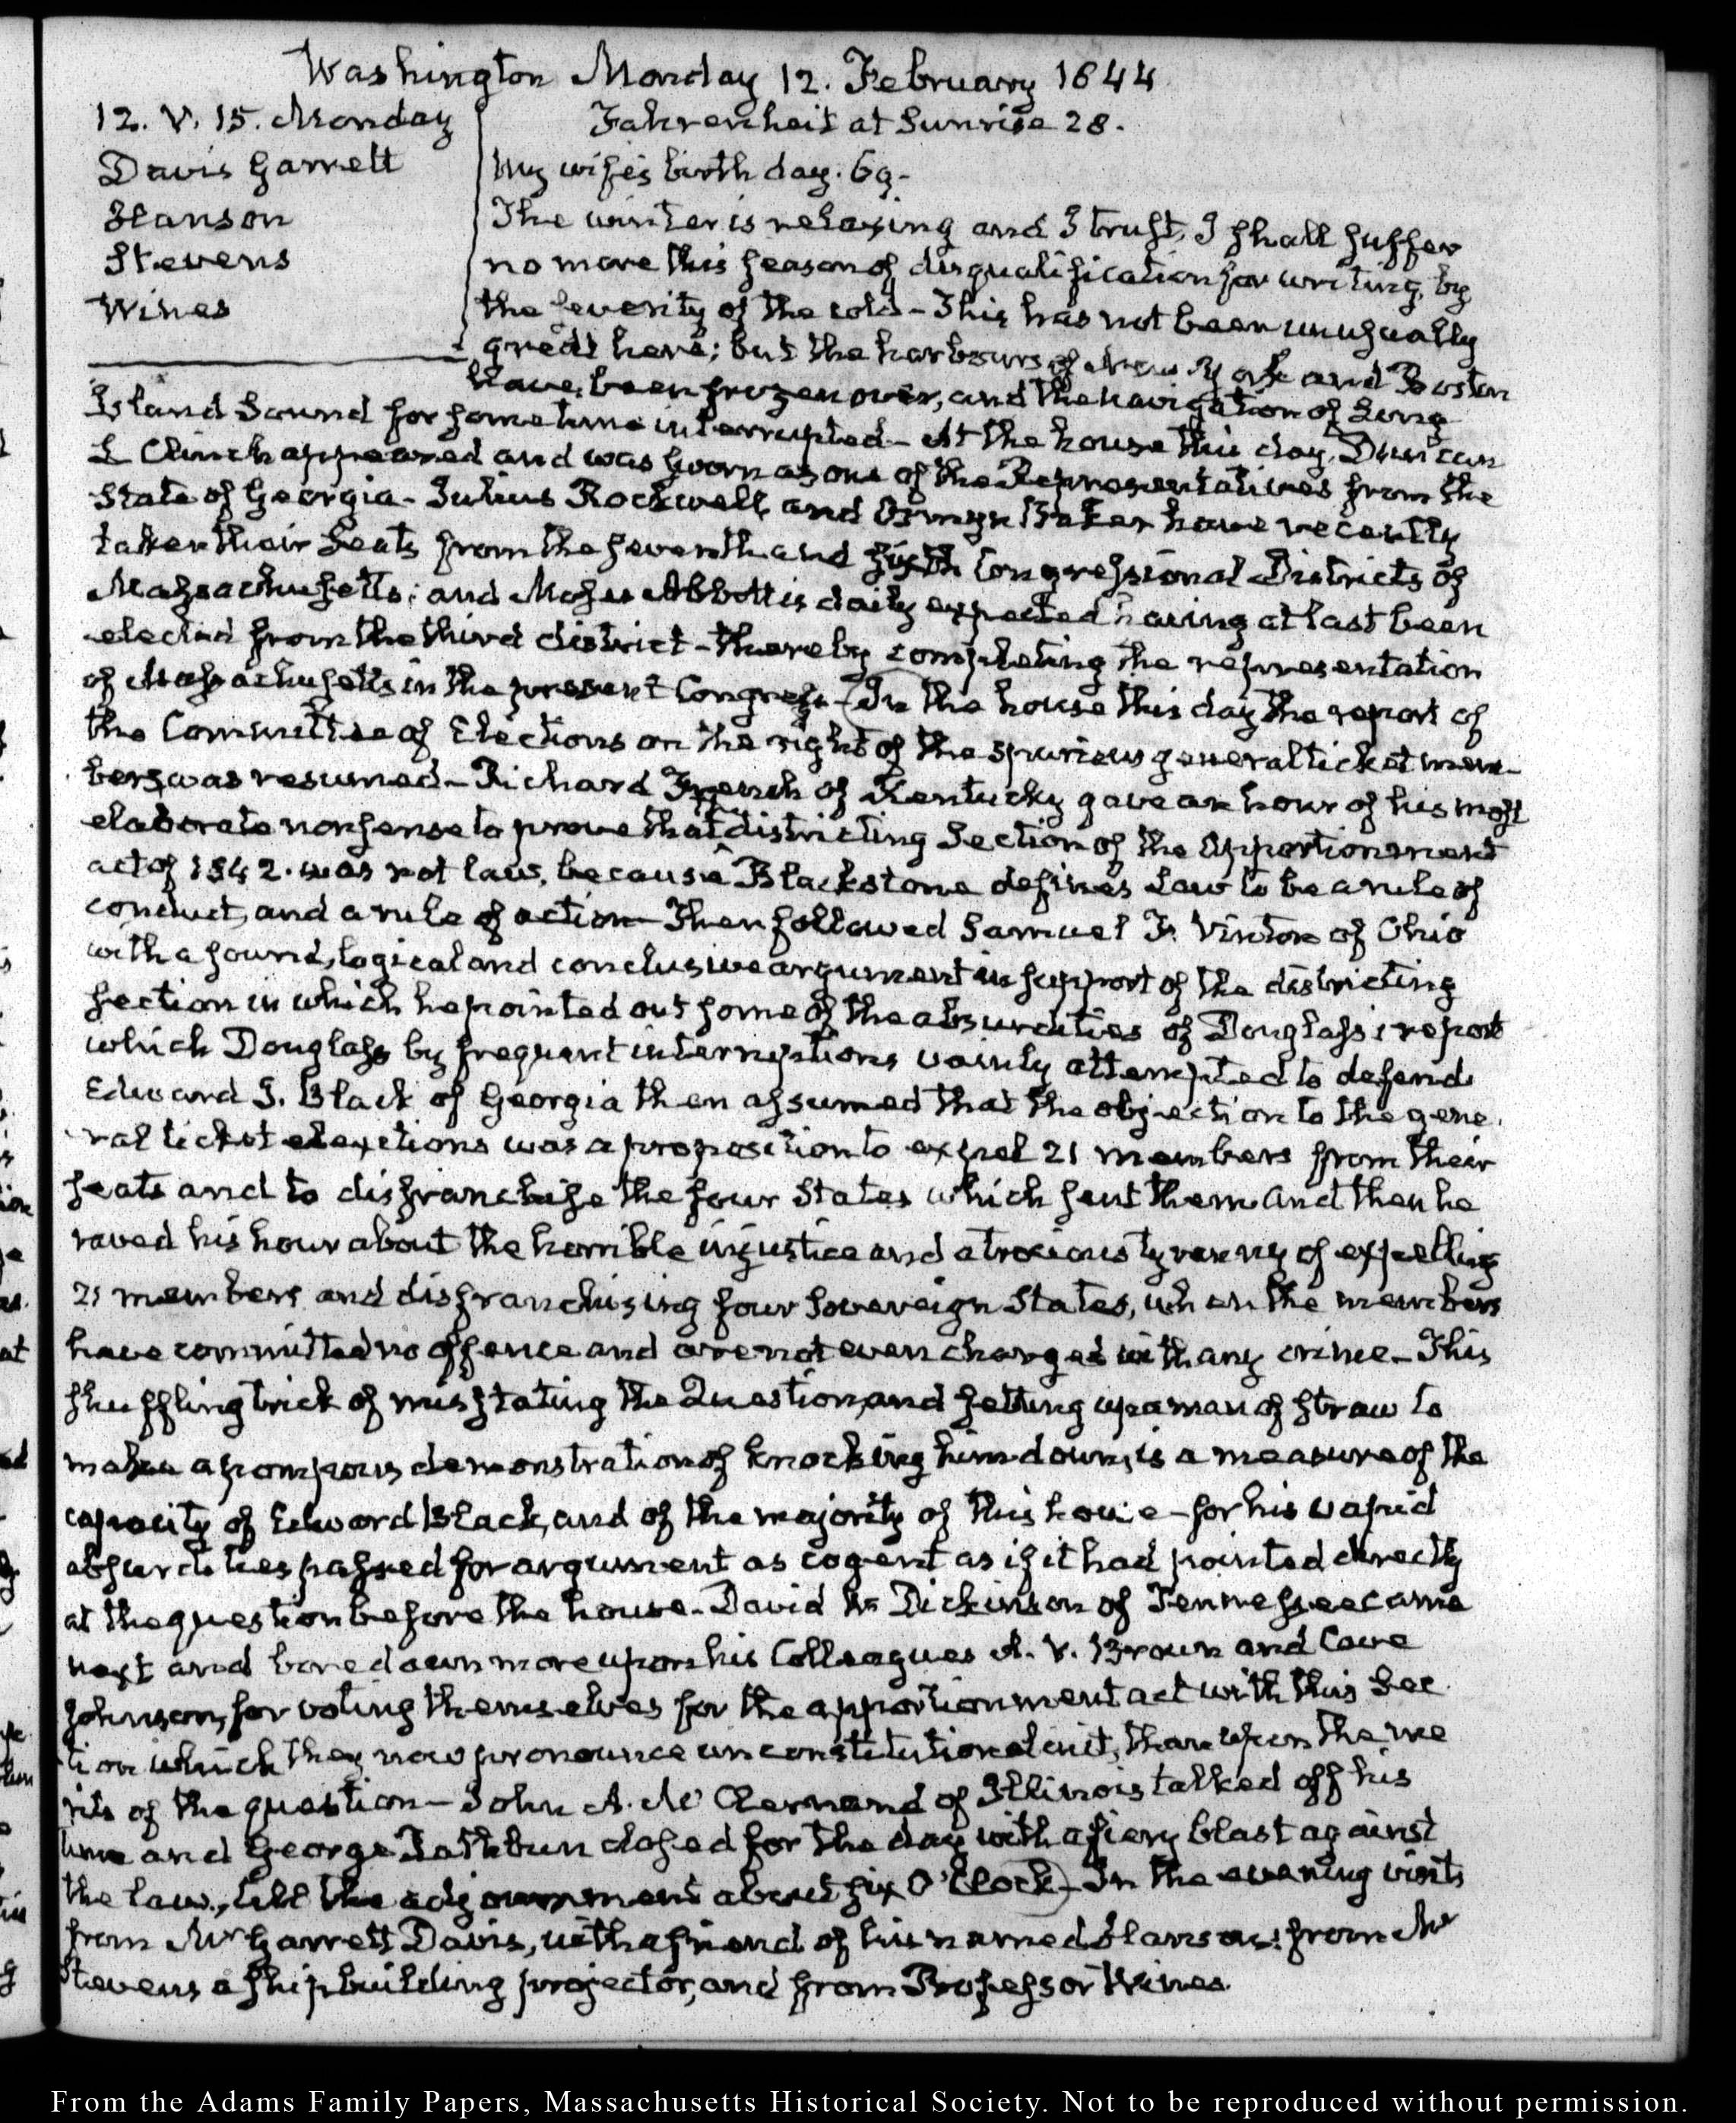 Washington Monday 12. February 1844
12. V. 15. Monday
Davis Garrett
Hanson
Stevens
Wines
Fahrenheit at Sunrise 28.
My wife's birth day. 69.
The winter is relaxing and I trust, I shall suffer
no more this season of disqualification for writing, by
the severity of the cold – This has not been unusually
great here; but the harbours of New York and Boston
have been frozen over, and the navigation of Long
Island Sound for some time interrupted – At the house this day, Duncan
L Clinch appeared and was sworn as one of the Representatives from the
State of Georgia – Julius Rockwell and Osmyn Baker have recently
taken their Seats from the seventh and sixth Congressional Districts of
Massachusetts; and Moses Abbott is daily expected having at last been
elected from the third district – thereby completing the representation
of Massachusetts in the present Congress – (In the house this day the report of
the Committee of Elections on the right of the spurious general ticket mem-
bers was resumed – Richard French of Kentucky gave an hour of his most
elaborate nonsense to prove that districting Section of the Apportionment
act of 1842. was not law, because Blackstone defines Law to be a rule of
conduct, and a rule of action – Then followed Samuel F. Vinton of Ohio
with a sound, logical and conclusive argument in support of the districting
section in which he pointed out some of the absurdities of Douglass's report
which Douglass by frequent interruptions vainly attempted to defend
Edward J. Black of Georgia then assumed that the objection to the gene
ral ticket elections was a proposition to expel 21 members from their
seats and to disfranchise the four States which sent them and then he
raved his hour about the horrible injustice and atrocious tyranny of expelling
21 members and disfranchising four Sovereign States, when the members
have committed no offence and are not even charged with any crime – This
shuffling trick of misstating the Question, and setting up a man of straw to
make a pompous demonstration of knocking him down, is a measure of the
capacity of Edward Black, and of the majority of this house – for his vapid
absurdities passed for argument as cogent as if it had pointed directly
at the question before the house – David W. Dickinson of Tennessee came
next and bore down more upon his Colleagues A. V. Brown and Cave
Johnson, for voting themselves for the apportionment act with this Sec
tion which they now pronounce unconstitutional in it, than upon the me
rits of the question – John A. McClernand of Illinois talked off his
time and George Rathbun closed for the day with a fiery blast against
the law, till the adjournment about six O'Clock) – In the evening visits
from Mr Garrett Davis, with a friend of his named Hanson: from Mr
Stevens a shipbuilding projector, and from Professor Wines.
From the Adams Family Papers, Massachusetts Historical Society. Not to be reproduced without permission.